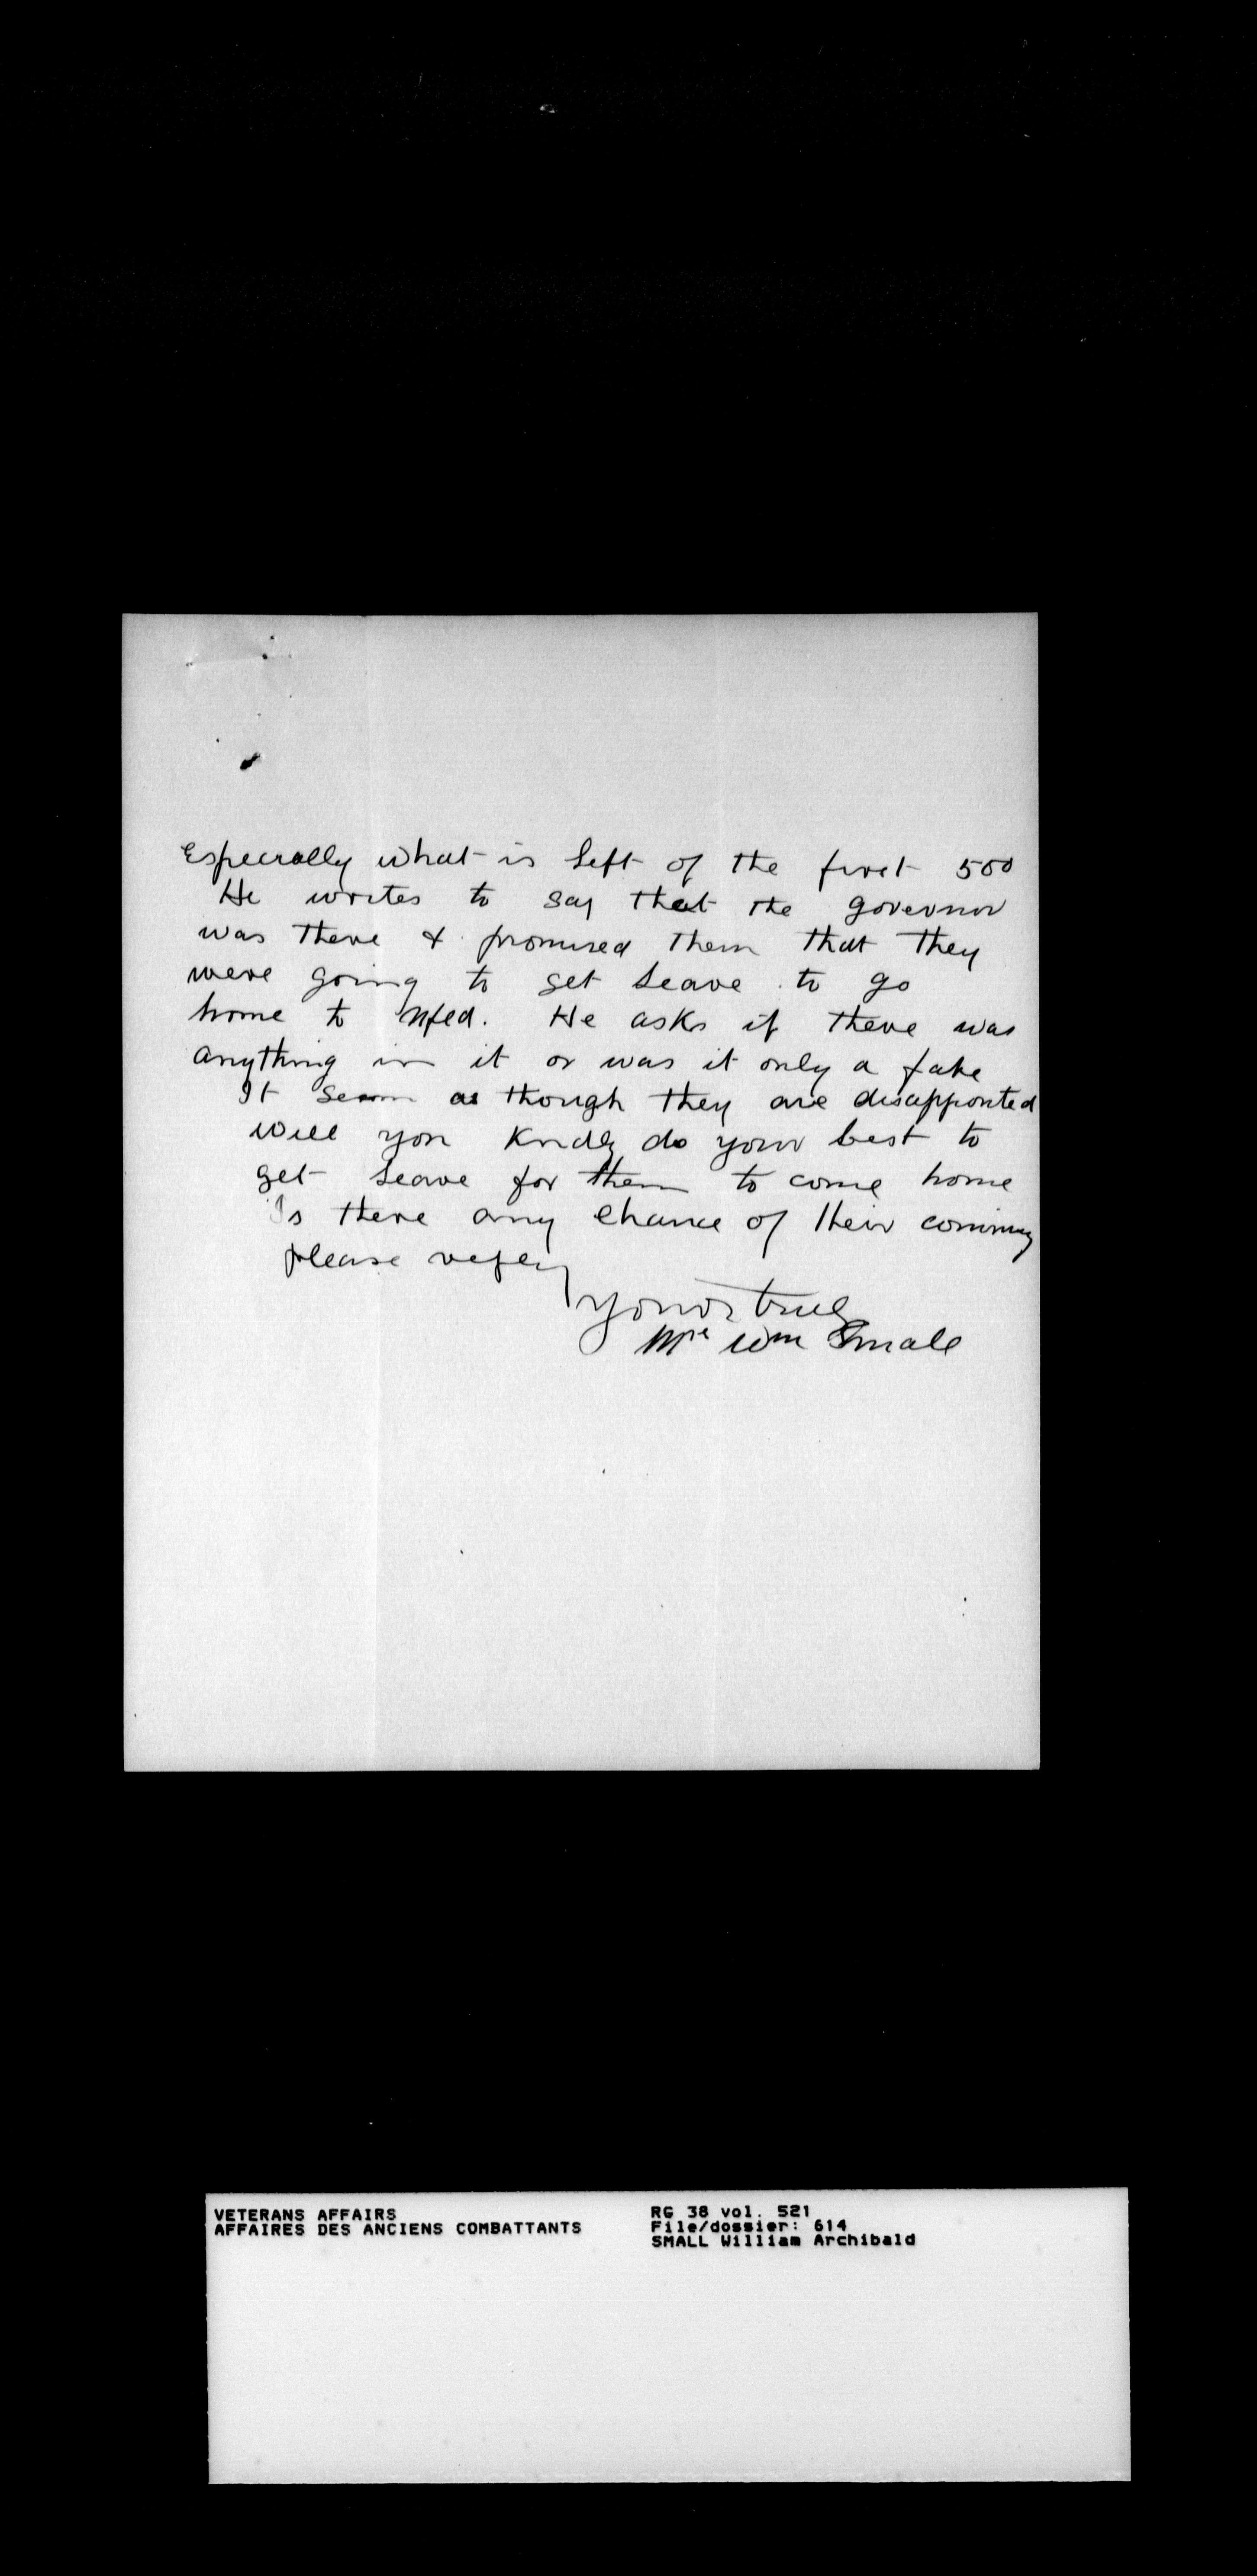 Especially what is left of the first 500
He writes to say that the governor
was there & promised them that they
were going to get leave to go
home to Nfld. He asks if there was
anything in it or was it only a fake
It seem as though they are disappointed
will you kindly do your best to
get leave for them to come home
Is there any chance of their coming
please reply
yours truly
Mrs Wm Small
VETERANS AFFAIRS
AFFAIRES DES ANCIENS COMBATTANTS
RG 38 vol. 521
File/dossier: 614
SMALL William Archibald